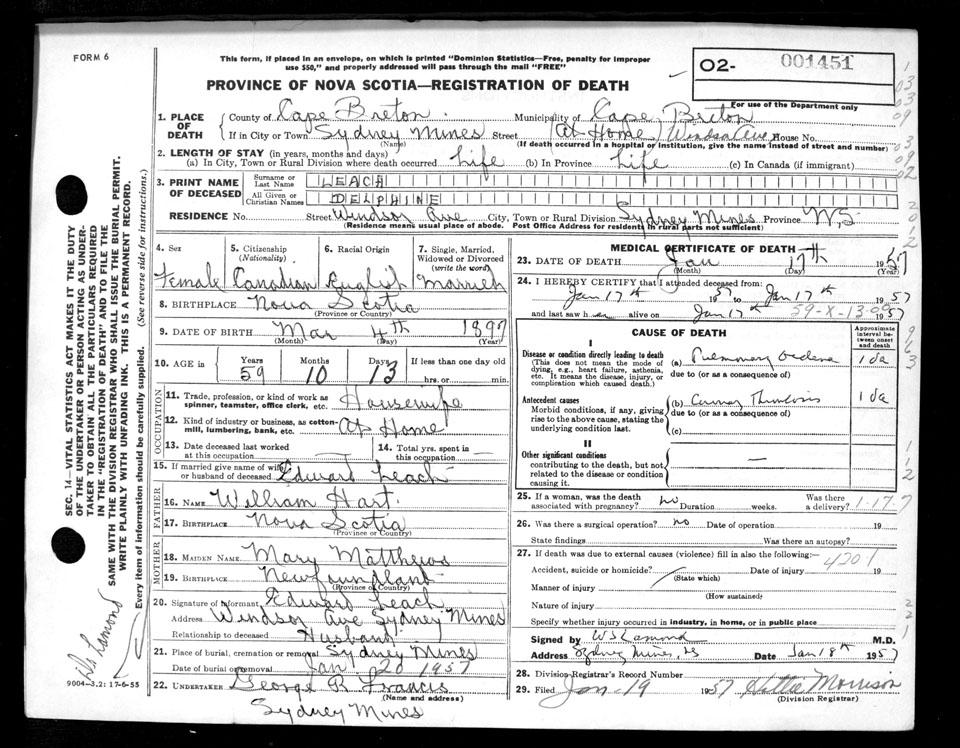 FORM 6
This form, if placed in an envelope, on which is printed "Dominion Statistics—Free, penalty for improper
use $50," and properly addressed will pass through the mail "FREE"
02- 001451
For use of the Department only
PROVINCE OF NOVA SCOTIA—REGISTRATION OF DEATH
1. PLACE OF DEATH County of Cape Breton Municipality of Cape Breton
If in City or Town Sydney Mines Street At Home, Windsor Ave House No.
(Name) (If death occurred in a hospital or institution, give the name instead of street and number)
2. LENGTH OF STAY (in years, months and days)
(a) In City, Town or Rural Division where death occurred Life (b) In Province Life (c) In Canada (if immigrant)
3. PRINT NAME OF DECEASED Surname or Last Name LEACH
All Given or Christian Names DELPHINE
RESIDENCE No. Street Windsor Ave City, Town or Rural Division Sydney Mines Province N,S
(Residence means usual place of abode. Post Office Address for residents in rural parts not sufficient)
4. Sex Female
5. Citizenship (Nationality) Canadian
6. Racial Origin English
7. Single, Married, Widowed or Divorced (write the word) Married
8. BIRTHPLACE Nova Scotia
(Province or Country)
9. DATE OF BIRTH Mar 4th 1897
(Month) (Day) (Year)
10. AGE in Years 59 Months 10 Days 13 If less than one day old hrs. or min.
OCCUPATION
11. Trade, profession, or kind of work as spinner, teamster, office clerk, etc. Housewife
12. Kind of industry or business, as cotton-mill, lumbering, bank, etc. At Home
13. Date deceased last worked at this occupation
14. Total yrs. spent in this occupation
15. If married give name of wife or husband of deceased Edward Leach
FATHER
16. NAME William Hart
17. BIRTHPLACE Nova Scotia
(Province or Country)
MOTHER
18. MAIDEN NAME Mary Matthews
19. BIRTHPLACE Newfoundland
(Province or Country)
20. Signature of informant Edward Leach
Address Windsor Ave Sydney Mines
Relationship to deceased Husband
21. Place of burial, cremation or removal Sydney Mines
Date of burial or removal Jan 20 1957
22. UNDERTAKER George B Francis
(Name and address)
Sydney Mines
MEDICAL CERTIFICATE OF DEATH
23. DATE OF DEATH Jan 17th 1957
(Month) (Day) (Year)
24. I HEREBY CERTIFY that I attended deceased from
Jan 17th 1957 to Jan 17th 1957
and last saw h alive on Jan 17th 1957
59-X-13-0
CAUSE OF DEATH
Approximate interval between onset and death
I
Disease or condition directly leading to death
(This does not mean the mode of dying, e.g., heart failure, asthenia, etc. It means the disease, injury, or complication which caused death.)
(a) Pulmonary Oedema 1 da
due to (or as a consequence of)
Antecedent causes
Morbid conditions, if any, giving rise to the above cause, stating the underlying condition last.
(b) Coronary Thrombosis 1 da
due to (or as a consequence of)
(c)
II
Other significant conditions
contributing to the death, but not related to the disease or condition causing it.
—
25. If a woman, was the death associated with pregnancy? no Duration weeks. Was there a delivery?
1-17-7
26. Was there a surgical operation? no Date of operation 19
State findings Was there an autopsy?
27. If death was due to external causes (violence) fill in also the following:—
Accident, suicide or homicide? Date of injury 19
4201
(State which)
Manner of injury
(How sustained)
Nature of injury
Specify whether injury occurred in industry, in home, or in public place
Signed by W S Lamond M.D.
Address Sydney Mines, NS Date Jan 18th 1957
28. Division Registrar's Record Number
29. Filed Jan-19 1957 Morrison
(Division Registrar)
SEC. 14—VITAL STATISTICS ACT MAKES IT THE DUTY
OF THE UNDERTAKER OR PERSON ACTING AS UNDER-
TAKER TO OBTAIN ALL THE PARTICULARS REQUIRED
IN THE "REGISTRATION OF DEATH" AND TO FILE THE
SAME WITH THE DIVISION REGISTRAR WHO SHALL ISSUE THE BURIAL PERMIT.
WRITE PLAINLY WITH UNFADING INK. THIS IS A PERMANENT RECORD.
Every item of information should be carefully supplied. (See reverse side for instructions.)
Lamond
9004-3.2: 17-6-55